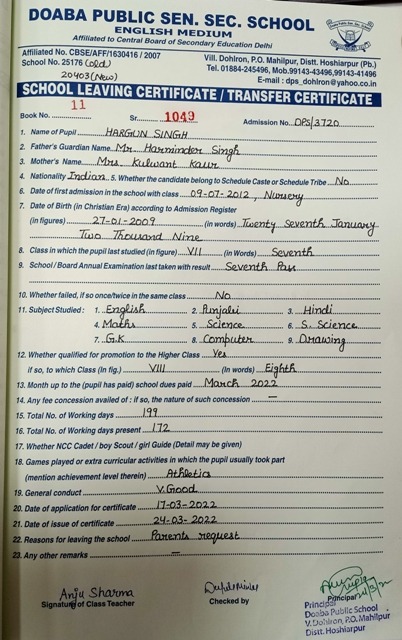 DOABA PUBLIC SEN. SEC. SCHOOL
ENGLISH MEDIUM
Affiliated to Central Board of Secondary Education Delhi
Affiliated No. CBSE/AFF/1630416 / 2007
School No. 25176 (old)
20403 (New)
Vill. Dohlron, P.O. Mahilpur, Distt. Hoshiarpur (Pb.)
Tel. 01884-245496, Mob.99143-43496,99143-41496
E-mail : dps_dohlron@yahoo.co.in
SCHOOL LEAVING CERTIFICATE / TRANSFER CERTIFICATE
Book No. 11 Sr. 1049 Admission No. DPS/3720
1. Name of Pupil HARGUN SINGH
2. Father's Guardian Name Mr. Harminder Singh
3. Mother's Name Mrs. Kulwant Kaur
4. Nationality Indian 5. Whether the candidate belong to Schedule Caste or Schedule Tribe No
6. Date of first admission in the school with class 09-07-2012, Nursery
7. Date of Birth (in Christian Era) according to Admission Register
(in figures) 27-01-2009 (in words) Twenty Seventh January
Two Thousand Nine
8. Class in which the pupil last studied (in figure) VII (in Words) Seventh
9. School / Board Annual Examination last taken with result Seventh Pass
10. Whether failed, if so once/twice in the same class No
11. Subject Studied : 1. English 2. Punjabi 3. Hindi
4. Maths 5. Science 6. S. Science
7. G.K 8. Computer 9. Drawing
12. Whether qualified for promotion to the Higher Class Yes
if so, to which Class (In fig.) VIII (In words) Eighth
13. Month up to the (pupil has paid) school dues paid March 2022
14. Any fee concession availed of : if so, the nature of such concession —
15. Total No. of Working days 199
16. Total No. of Working days present 172
17. Whether NCC Cadet / boy Scout / girl Guide (Detail may be given)
18. Games played or extra curricular activities in which the pupil usually took part
(mention achievement level therein) Athletics
19. General conduct V.Good
20. Date of application for certificate 17-03-2022
21. Date of issue of certificate 24-03-2022
22. Reasons for leaving the school Parents request
23. Any other remarks —
Anju Sharma
Signature of Class Teacher
Checked by
Principal
Principal
Doaba Public School
V. Dohlron, P.O. Mahilpur
Distt. Hoshiarpur